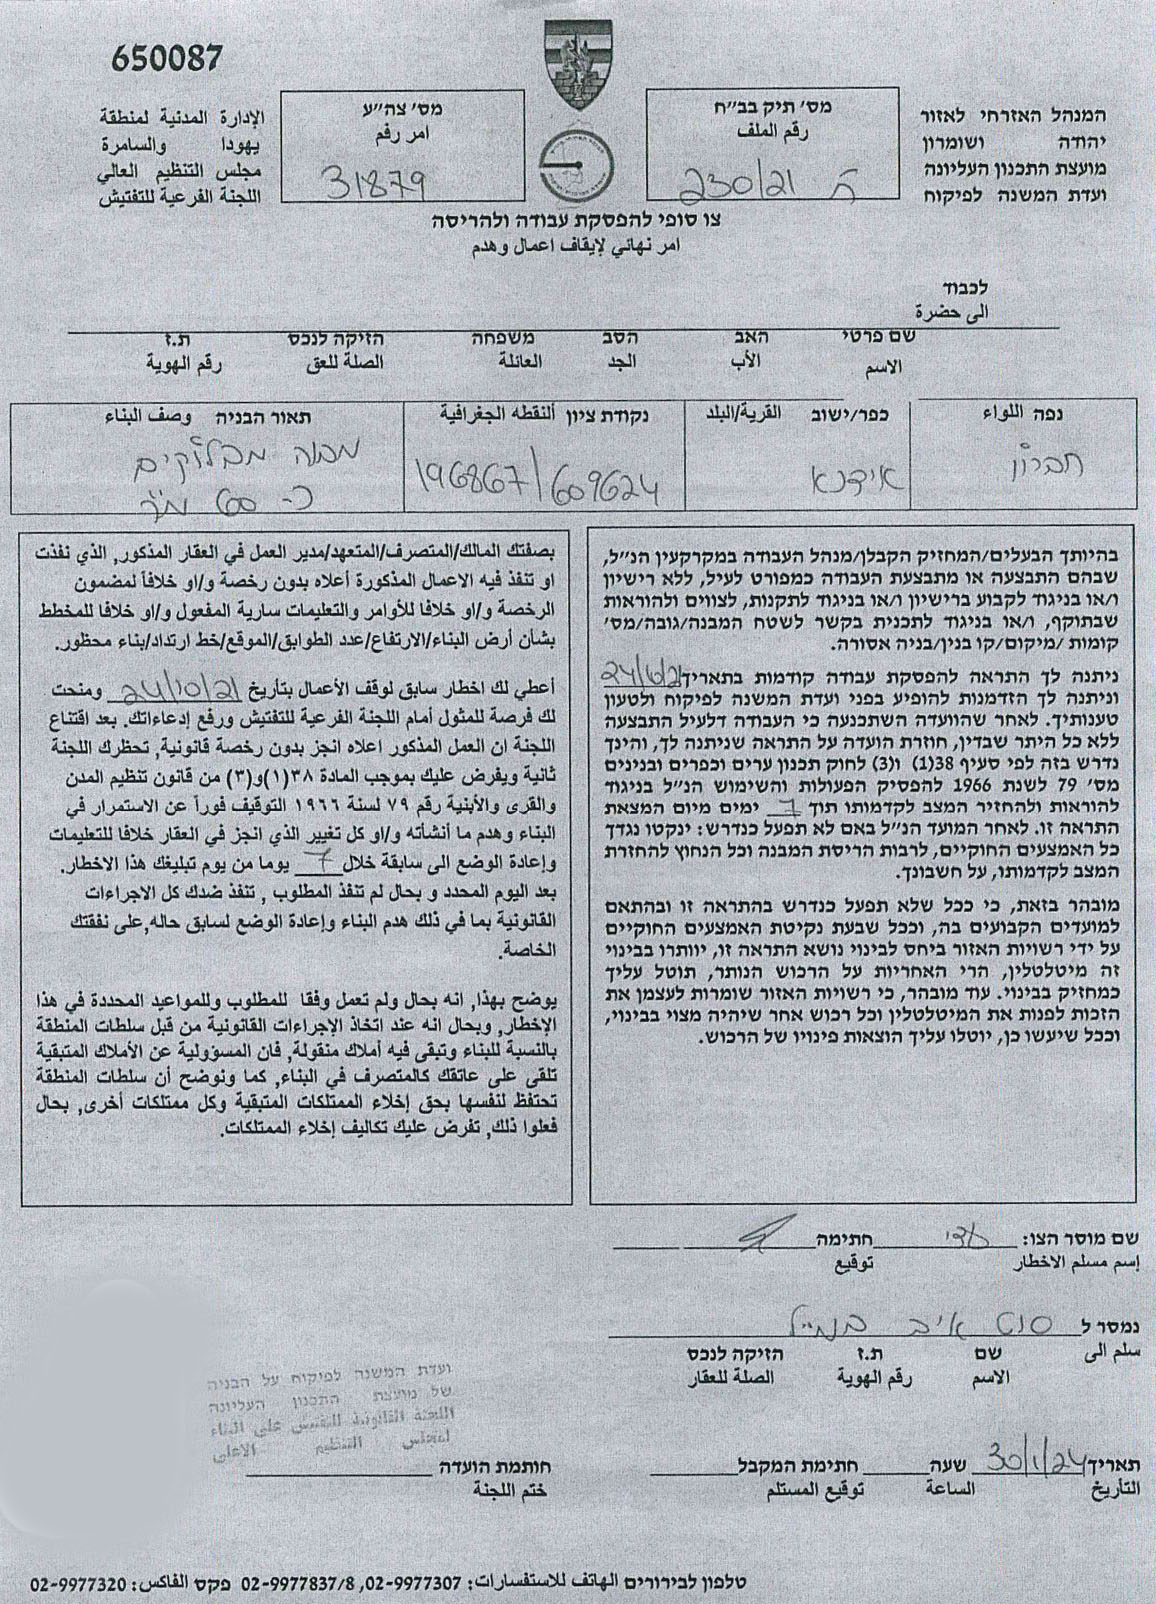 650087
המנהל האזרחי לאזור
יהודה ושומרון
מועצת התכנון העליונה
ועדת המשנה לפיקוח
מס׳ תיק בב״ח
رقم الملف
ח 230/21
מס׳ צה״ע
امر رقم
31879
الإدارة المدنية لمنطقة
يهودا والسامرة
مجلس التنظيم العالي
اللجنة الفرعية للتفتيش
צו סופי להפסקת עבודה ולהריסה
امر نهائي لإيقاف اعمال وهدم
לכבוד
الى حضرة
שם פרטי האב הסב משפחה הזיקה לנכס ת.ז
الاسم الأب الجد العائلة الصلة للعق رقم الهوية
נפה اللواء
חברון
כפר/ישוב القرية/البلد
אידנא
נקודת ציון ألنقطه الجغرافية
196867/609624
תאור הבניה وصف البناء
מבנה מבלוקים
כ- 60 מ״ר
בהיותך הבעלים/המחזיק הקבלן/מנהל העבודה במקרקעין הנ״ל,
שבהם התבצעה או מתבצעת העבודה כמפורט לעיל, ללא רישיון
ו/או בניגוד לקבוע ברישיון ו/או בניגוד לתקנות, לצווים ולהוראות
שבתוקף, ו/או בניגוד לתכנית בקשר לשטח המבנה/גובה/מס׳
קומות /מיקום/קו בנין/בניה אסורה.
ניתנה לך התראה להפסקת עבודה קודמות בתאריך
וניתנה לך הזדמנות להופיע בפני ועדת המשנה לפיקוח ולטעון
טענותיך. לאחר שהוועדה השתכנעה כי העבודה דלעיל התבצעה
ללא כל היתר שבדין, חוזרת הועדה על התראה שניתנה לך, והינך
נדרש בזה לפי סעיף 38(1) ו(3) לחוק תכנון ערים וכפרים ובנינים
מס׳ 79 לשנת 1966 להפסיק הפעולות והשימוש הנ״ל בניגוד
להוראות ולהחזיר המצב לקדמותו תוך 7 ימים מיום המצאת
התראה זו. לאחר המועד הנ״ל באם לא תפעל כנדרש: ינקטו נגדך
כל האמצעים החוקיים, לרבות הריסת המבנה וכל הנחוץ להחזרת
המצב לקדמותו, על חשבונך.
מובהר בזאת, כי ככל שלא תפעל כנדרש בהתראה זו ובהתאם
למועדים הקבועים בה, וככל שבעת נקיטת האמצעים החוקיים
על ידי רשויות האזור ביחס לבינוי נושא התראה זו, יוותרו בבינוי
זה מיטלטלין, הרי האחריות על הרכוש הנותר, תוטל עליך
כמחזיק בבינוי. עוד מובהר, כי רשויות האזור שומרות לעצמן את
הזכות לפנות את המיטלטלין וכל רכוש אחר שיהיה מצוי בבינוי,
וככל שיעשו כן, יוטלו עליך הוצאות פינויו של הרכוש.
بصفتك المالك/المتصرف/المتعهد/مدير العمل في العقار المذكور, الذي نفذت
او تنفذ فيه الاعمال المذكورة أعلاه بدون رخصة و/او خلافاً لمضمون
الرخصة و/او خلافا للأوامر والتعليمات سارية المفعول و/او خلافا للمخطط
بشأن أرض البناء/الارتفاع/عدد الطوابق/الموقع/خط ارتداد/بناء محظور.
أعطي لك اخطار سابق لوقف الأعمال بتأريخ 24/10/21 ومنحت
لك فرصة للمثول أمام اللجنة الفرعية للتفتيش ورفع إدعاءاتك. بعد اقتناع
اللجنة ان العمل المذكور اعلاه انجز بدون رخصة قانونية, تحظرك اللجنة
ثانية ويفرض عليك بموجب المادة ٣٨(١)و(٣) من قانون تنظيم المدن
والقرى والأبنية رقم ٧٩ لسنة ١٩٦٦ التوقيف فوراً عن الاستمرار في
البناء وهدم ما أنشأته و/او كل تغيير الذي انجز في العقار خلافا للتعليمات
وإعادة الوضع الى سابقة خلال 7 يوما من يوم تبليغك هذا الاخطار.
بعد اليوم المحدد و بحال لم تنفذ المطلوب , تنفذ ضدك كل الاجراءات
القانونية بما في ذلك هدم البناء وإعادة الوضع لسابق حاله,على نفقتك
الخاصة.
يوضح بهذا, انه بحال ولم تعمل وفقا للمطلوب وللمواعيد المحددة في هذا
الإخطار, وبحال انه عند اتخاذ الإجراءات القانونية من قبل سلطات المنطقة
بالنسبة للبناء وتبقى فيه أملاك منقولة, فان المسؤولية عن الأملاك المتبقية
تلقى على عاتقك كالمتصرف في البناء, كما ونوضح أن سلطات المنطقة
تحتفظ لنفسها بحق إخلاء الممتلكات المتبقية وكل ممتلكات أخرى, بحال
فعلوا ذلك, تفرض عليك تكاليف إخلاء الممتلكات.
שם מוסר הצו: חתימה
إسم مسلم الاخطار توقيع
נמסר ל
سلم الى
שם ת.ז הזיקה לנכס
الاسم رقم الهوية الصلة للعقار
ועדת המשנה לפיקוח על הבניה
של מועצת התכנון העליונה
اللجنة القانونية للتفتيش على البناء
لمجلس التنظيم الاعلى
תאריך 30/1/24 שעה חתימת המקבל
التأريخ الساعة توقيع المستلم
חותמת הועדה
ختم اللجنة
טלפון לבירורים الهاتف للاستفسارات: 02-9977307, 02-9977837/8 פקס الفاكس: 02-9977320